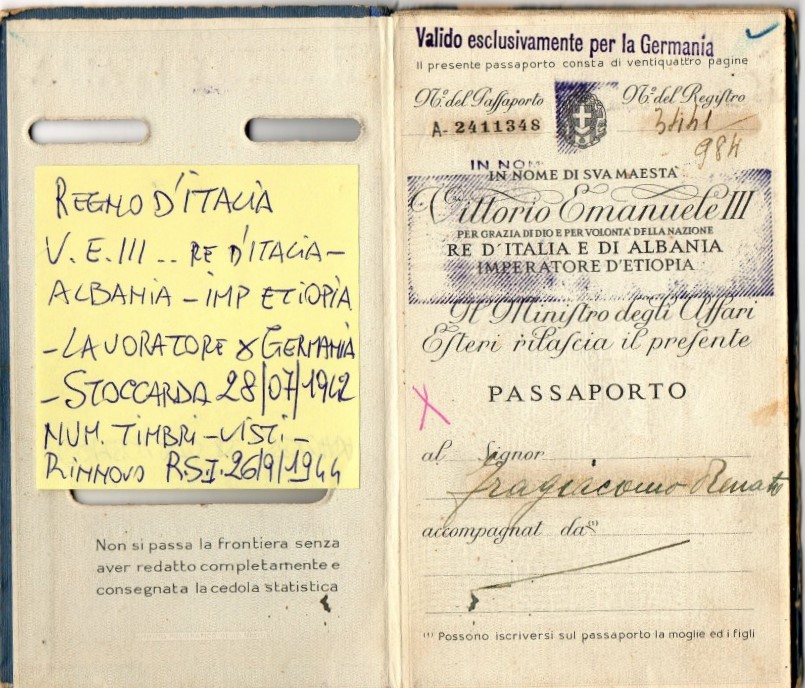 REGNO D'ITALIA
V. E. III .. RE D'ITALIA -
ALBANIA - IMP ETIOPIA
- LAVORATORE X GERMANIA
- STOCCARDA 28/07/1942
NUM. TIMBRI - VISTI -
RINNOVO R.S.I. 26/9/1944
Non si passa la frontiera senza
aver redatto completamente e
consegnata la cedola statistica
Valido esclusivamente per la Germania
Il presente passaporto consta di ventiquattro pagine
N.º del Passaporto
N.º del Registro
A- 2411348
3441
984
IN NOM
IN NOME DI SVA MAESTA'
Vittorio Emanuele III
PER GRAZIA DI DIO E PER VOLONTA' DELLA NAZIONE
RE D'ITALIA E DI ALBANIA
IMPERATORE D'ETIOPIA
Il Ministro degli Affari
Esteri rilascia il presente
PASSAPORTO
al Signor
Fragiacomo Renato
accompagnat da (1)
(1) Possono iscriversi sul passaporto la moglie ed i figli